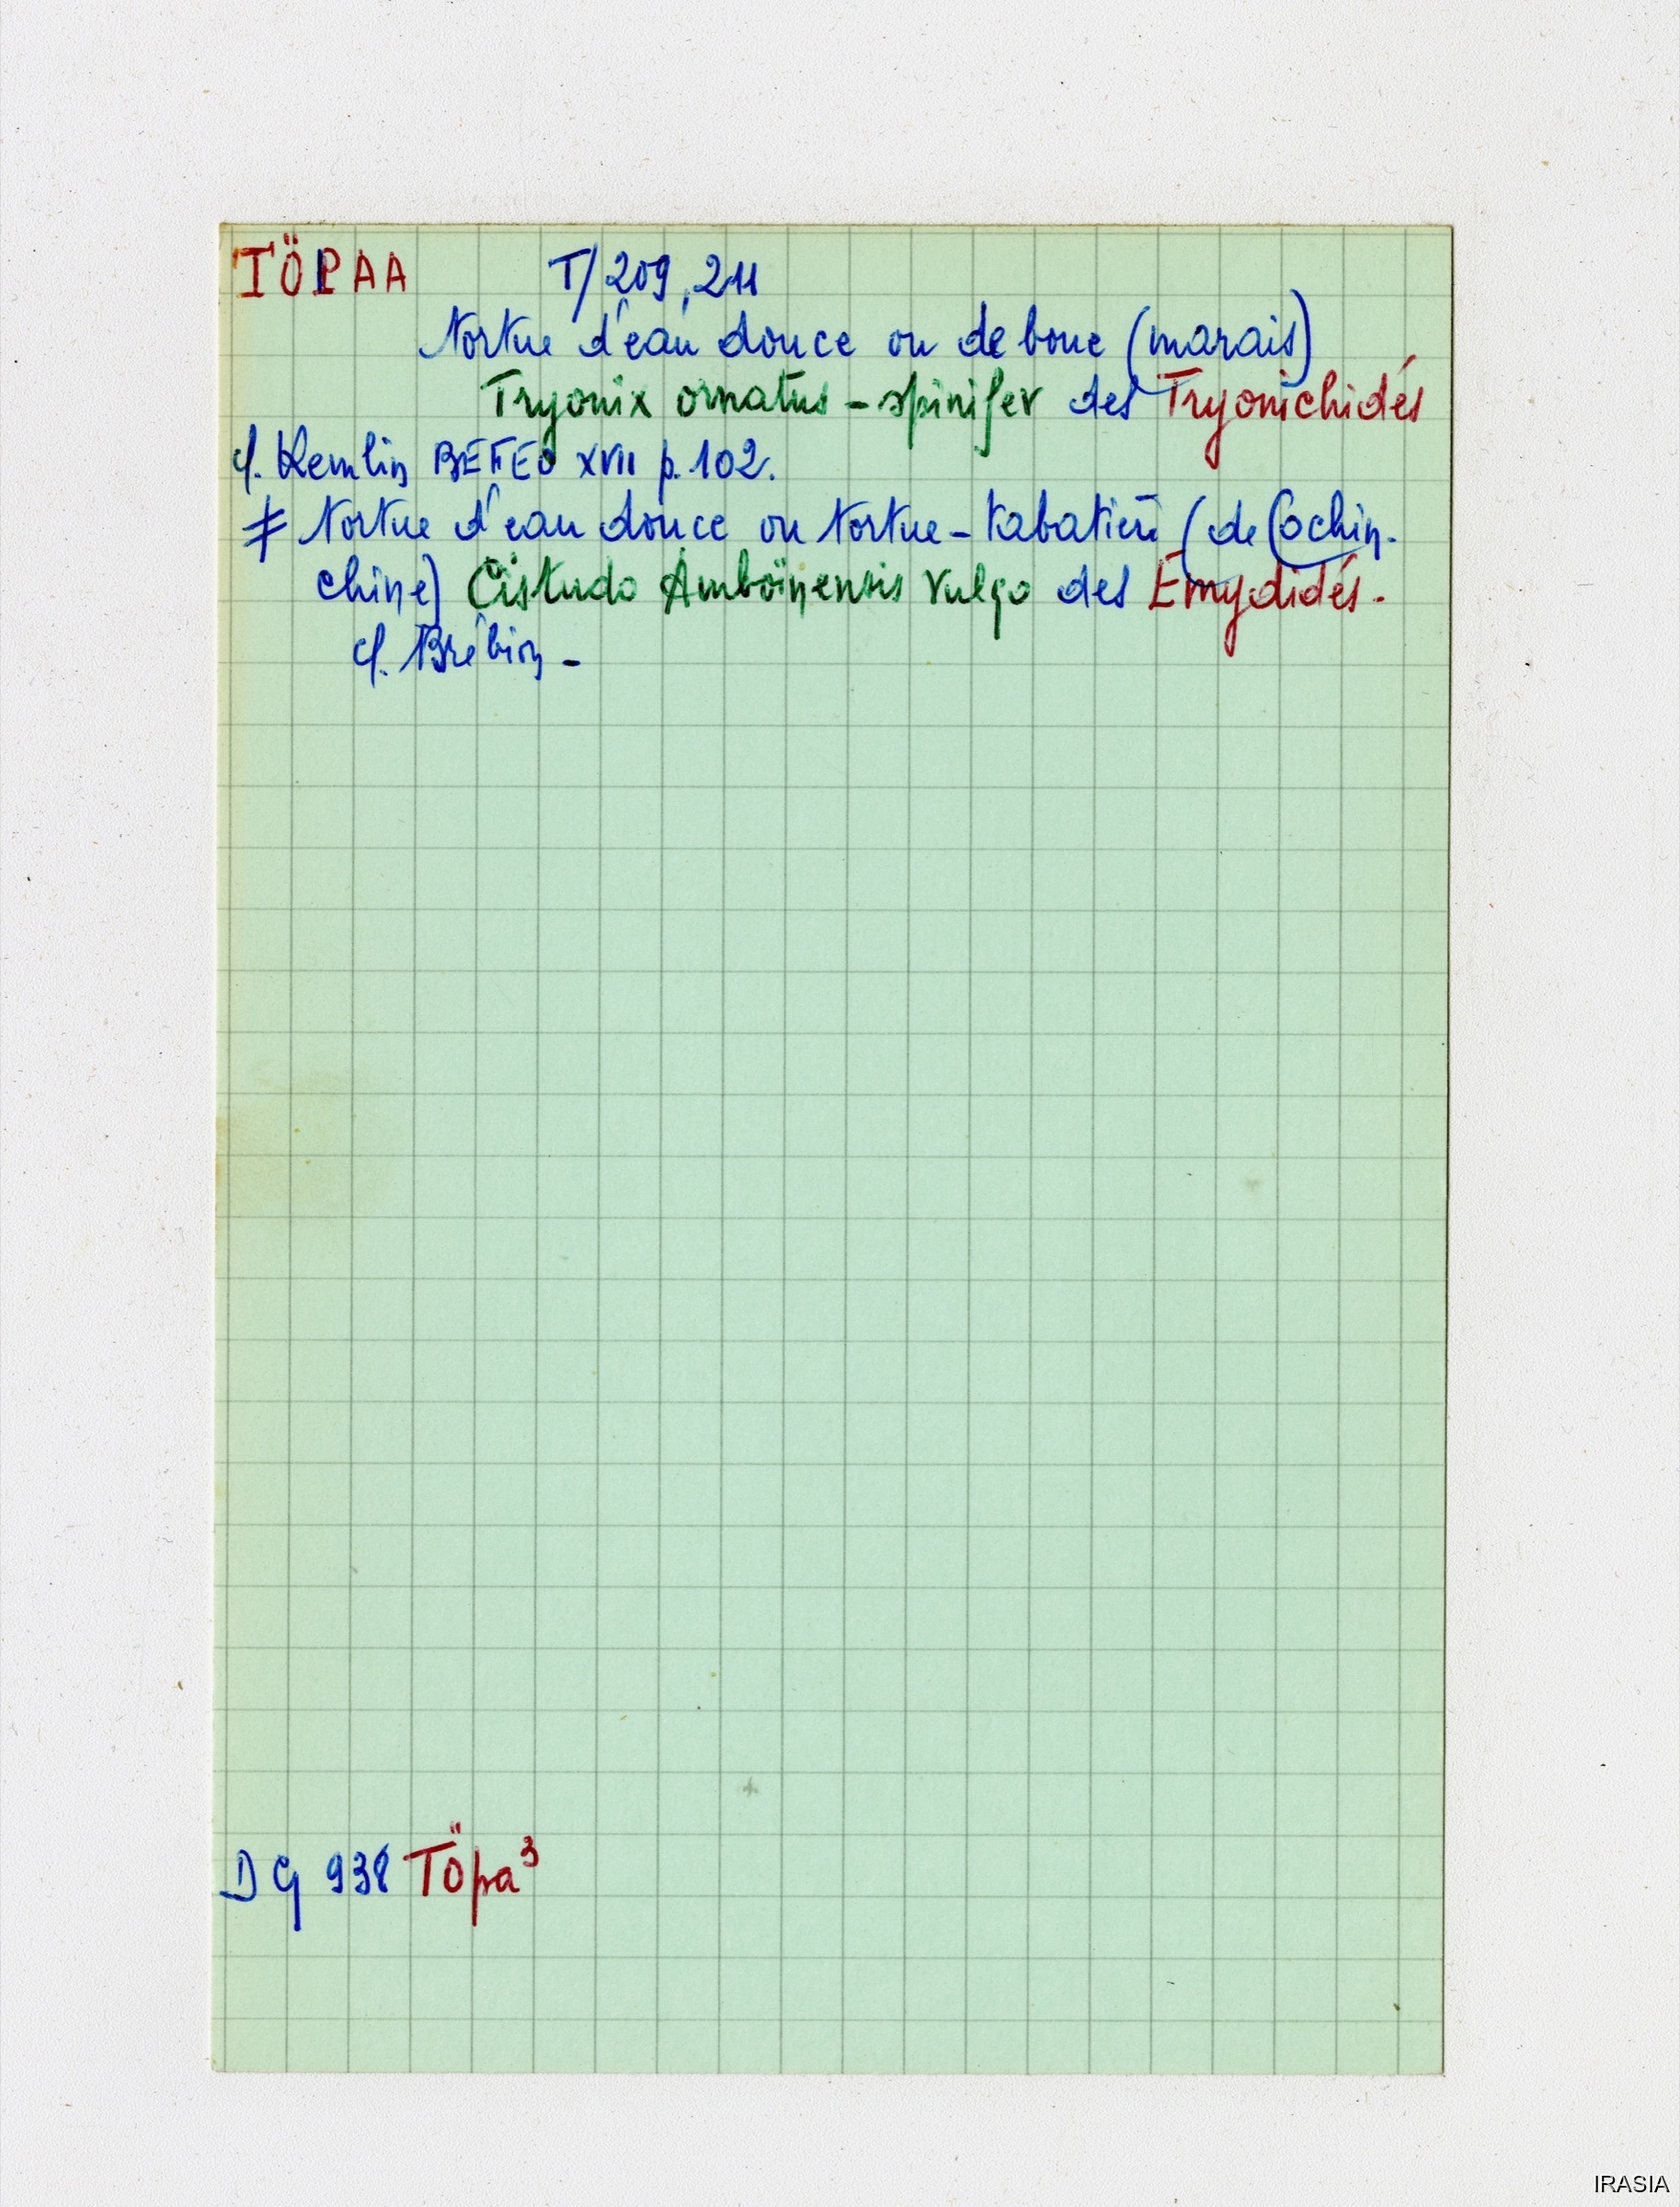 TÖPAA T/209, 211
tortue d'eau douce ou de boue (marais)
Tryonix ornatus - spinifer des Tryonichidés
cf. Kemlin BEFEO XVII p. 102.
≠ tortue d'eau douce ou tortue-tabatière (de Cochin-
chine) Cistudo Amboïnensis Vulgo des Emydidés.
cf. Brébion -
DG 938 Töpa³
IRASIA